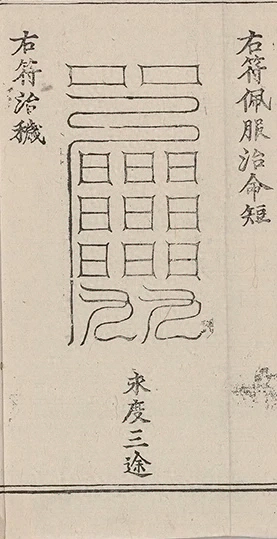 右符佩服治命短
永度三途
右符治穢